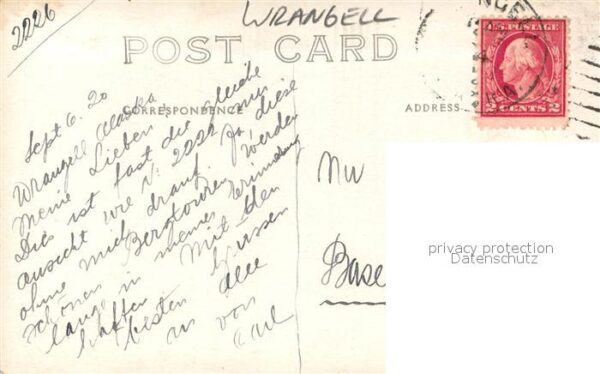 2226
WRANGELL
POST CARD
CORRESPONDENCE
ADDRESS
U.S. POSTAGE
2 CENTS 2
Sept 6. 20
Wrangell Alaska
Meine Lieben
Dies ist fast die gleiche
ansicht wie N: 2222 nur
ohne mich drauf. Ja diese
schönen Bergtouren werden
lange in meiner Erinnerung
haften. Mit den
besten Grüssen
an alle
von
Carl
Mr
Base
privacy protection
Datenschutz